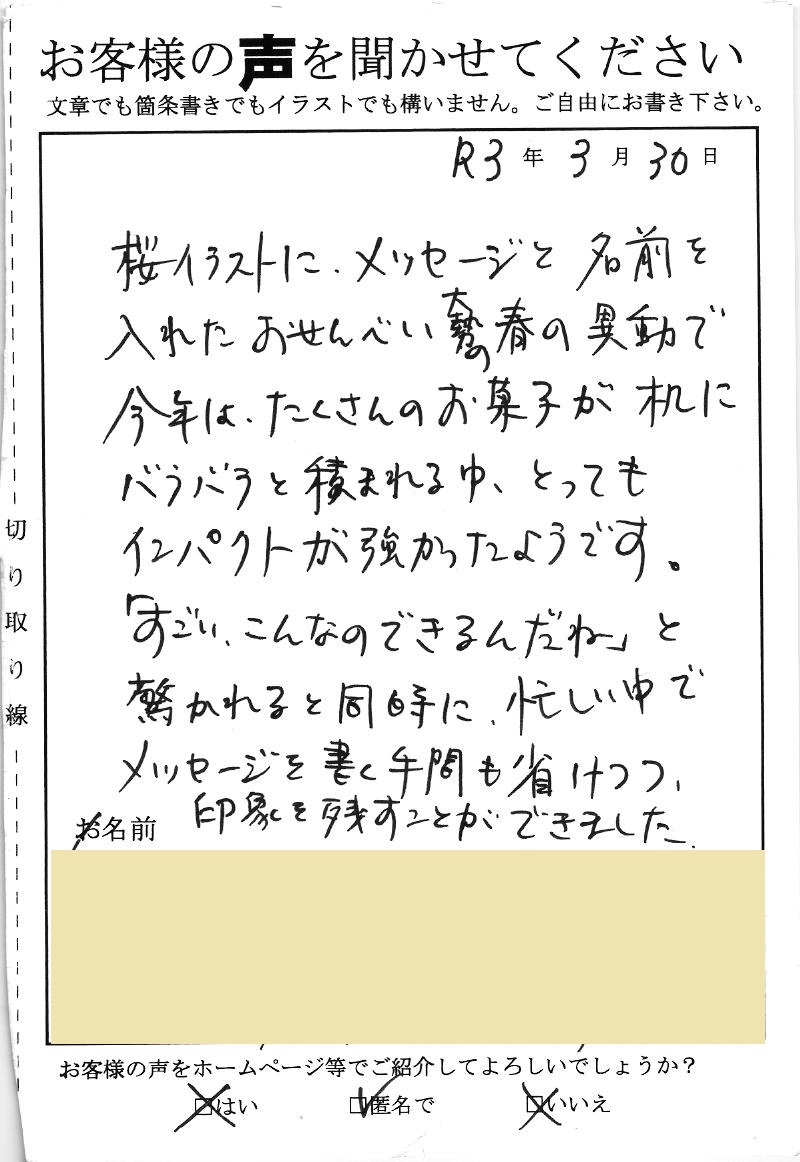 お客様の声を聞かせてください
文章でも箇条書きでもイラストでも構いません。ご自由にお書き下さい。
R3年3月30日
桜イラストに、メッセージと名前を
入れたおせんべい 大勢の春の異動で
今年は、たくさんのお菓子が机に
バラバラと積まれる中、とっても
インパクトが強かったようです。
「すごい、こんなのできるんだね」と
驚かれると同時に、忙しい中で
メッセージを書く手間も省けつつ、
印象を残すことができました。
お名前
お客様の声をホームページ等でご紹介してよろしいでしょうか?
□はい □匿名で □いいえ
切り取り線